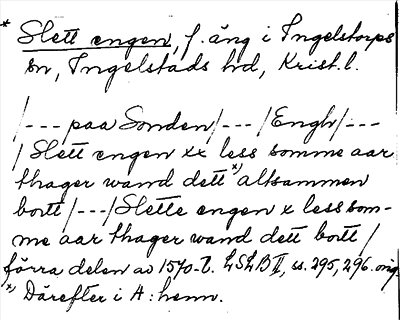 * Slett engen, f. äng i Ingelstorps
sn, Ingelstads hd, Krist. l.
/--- paa Sonden/---/Engh/---
/ Slett engen xx less somme aar
thager wand dett *) altsammen
bortt /---/Slette engen x less som-
me aar thager wand dett bortt /
förra delen av 1570-t. LSLB II, ss. 295, 296. orig.
*) Därefter i A: henn.